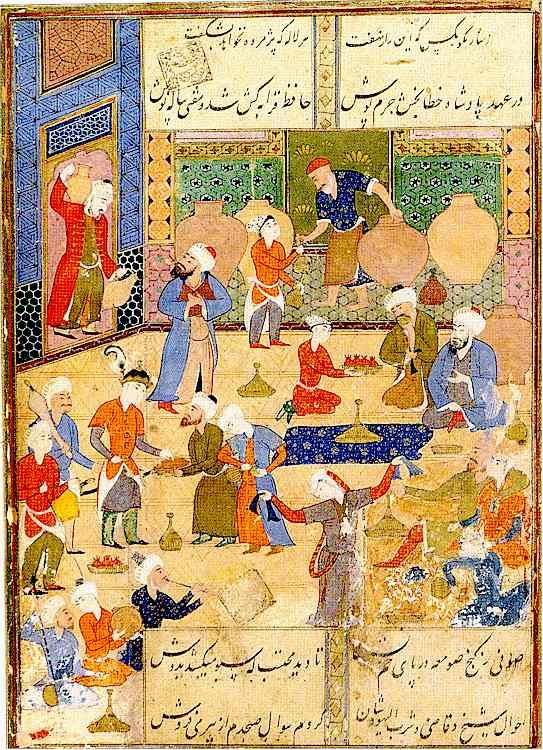 زنهار مگو بکس این راز نهفت هر لاله که پژمرده نخواهد بشکفت
در عهد پادشاه خطابخش جرم پوش حافظ قرابه کش شد و مفتی پیاله نوش
صوفی ز کنج صومعه در پای خم نشست تا دید محتسب که سبو میکشد بدوش
احوال شیخ و قاضی و شرب الیهودشان کردم سوال صبحدم از پیر می فروش